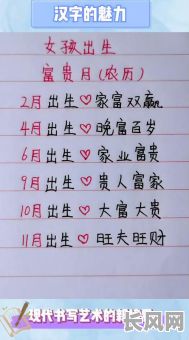 汉字的魅力
女孩出生
富贵月(农历)
2月出生♡家富双赢
4月出生♡晚富百岁
6月出生♡家业富贵
9月出生♡贵人富家
10月出生♡大富大贵
11月出生♡旺夫旺财
现代书写艺术的
长风网
cfw.cn